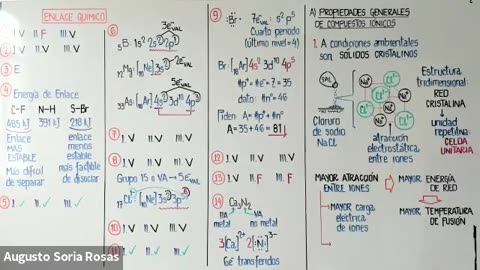 ENLACE QUÍMICO
① I.V II.F III.V
② I.V II.V III.V
③ E
④ Energía de Enlace
C-F N-H S-Br
485 kJ 391 kJ 218 kJ
Enlace MÁS ESTABLE
enlace menos estable
Más difícil de separar
más factible de disociar
⑤ I.✓ II.✓ III.✓
⑥ 3e⁻VAL
₅B: 1s² 2s² 2p¹
₁₂Mg: [₁₀Ne] 3s²
5eVAL
₃₃As: [₁₈Ar] 4s² 3d¹⁰ 4p³
⑦ I.V II.V III.V
⑧ Grupo 15 ó VA → 5e⁻VAL
₁₇Cl: [₁₀Ne] 3s² 3p⁵
⑩ I.V II.V III.V
⑪ I.✓ II.✓ III.✓
⑨ :Br· 7e⁻VAL: s² p⁵
Cuarto periodo
(último nivel=4)
Br [₁₈Ar] 4s² 3d¹⁰ 4p⁵
#p⁺ = #e⁻ = Z = 35
dato: #n° = 46
Piden: A = #p⁺ + #n°
A = 35 + 46 = 81
⑫ I.V II.V III.V
⑬ I.V II.F III.F
⑭ Ca₃N₂
IIA VA
metal no metal
3[Ca]²⁺ 2[:N:]³⁻
6e⁻ transferidos
A) PROPIEDADES GENERALES
DE COMPUESTOS IÓNICOS
1. A condiciones ambientales
son SÓLIDOS CRISTALINOS
SAL
Cloruro de sodio
NaCl
Na⁺ Cl⁻
atracción electrostática, entre iones
Estructura tridimensional: RED CRISTALINA
unidad repetitiva: CELDA UNITARIA
MAYOR ATRACCIÓN ENTRE IONES
MAYOR ENERGÍA DE RED
Mayor carga eléctrica de iones
MAYOR TEMPERATURA DE FUSIÓN
Augusto Soria Rosas